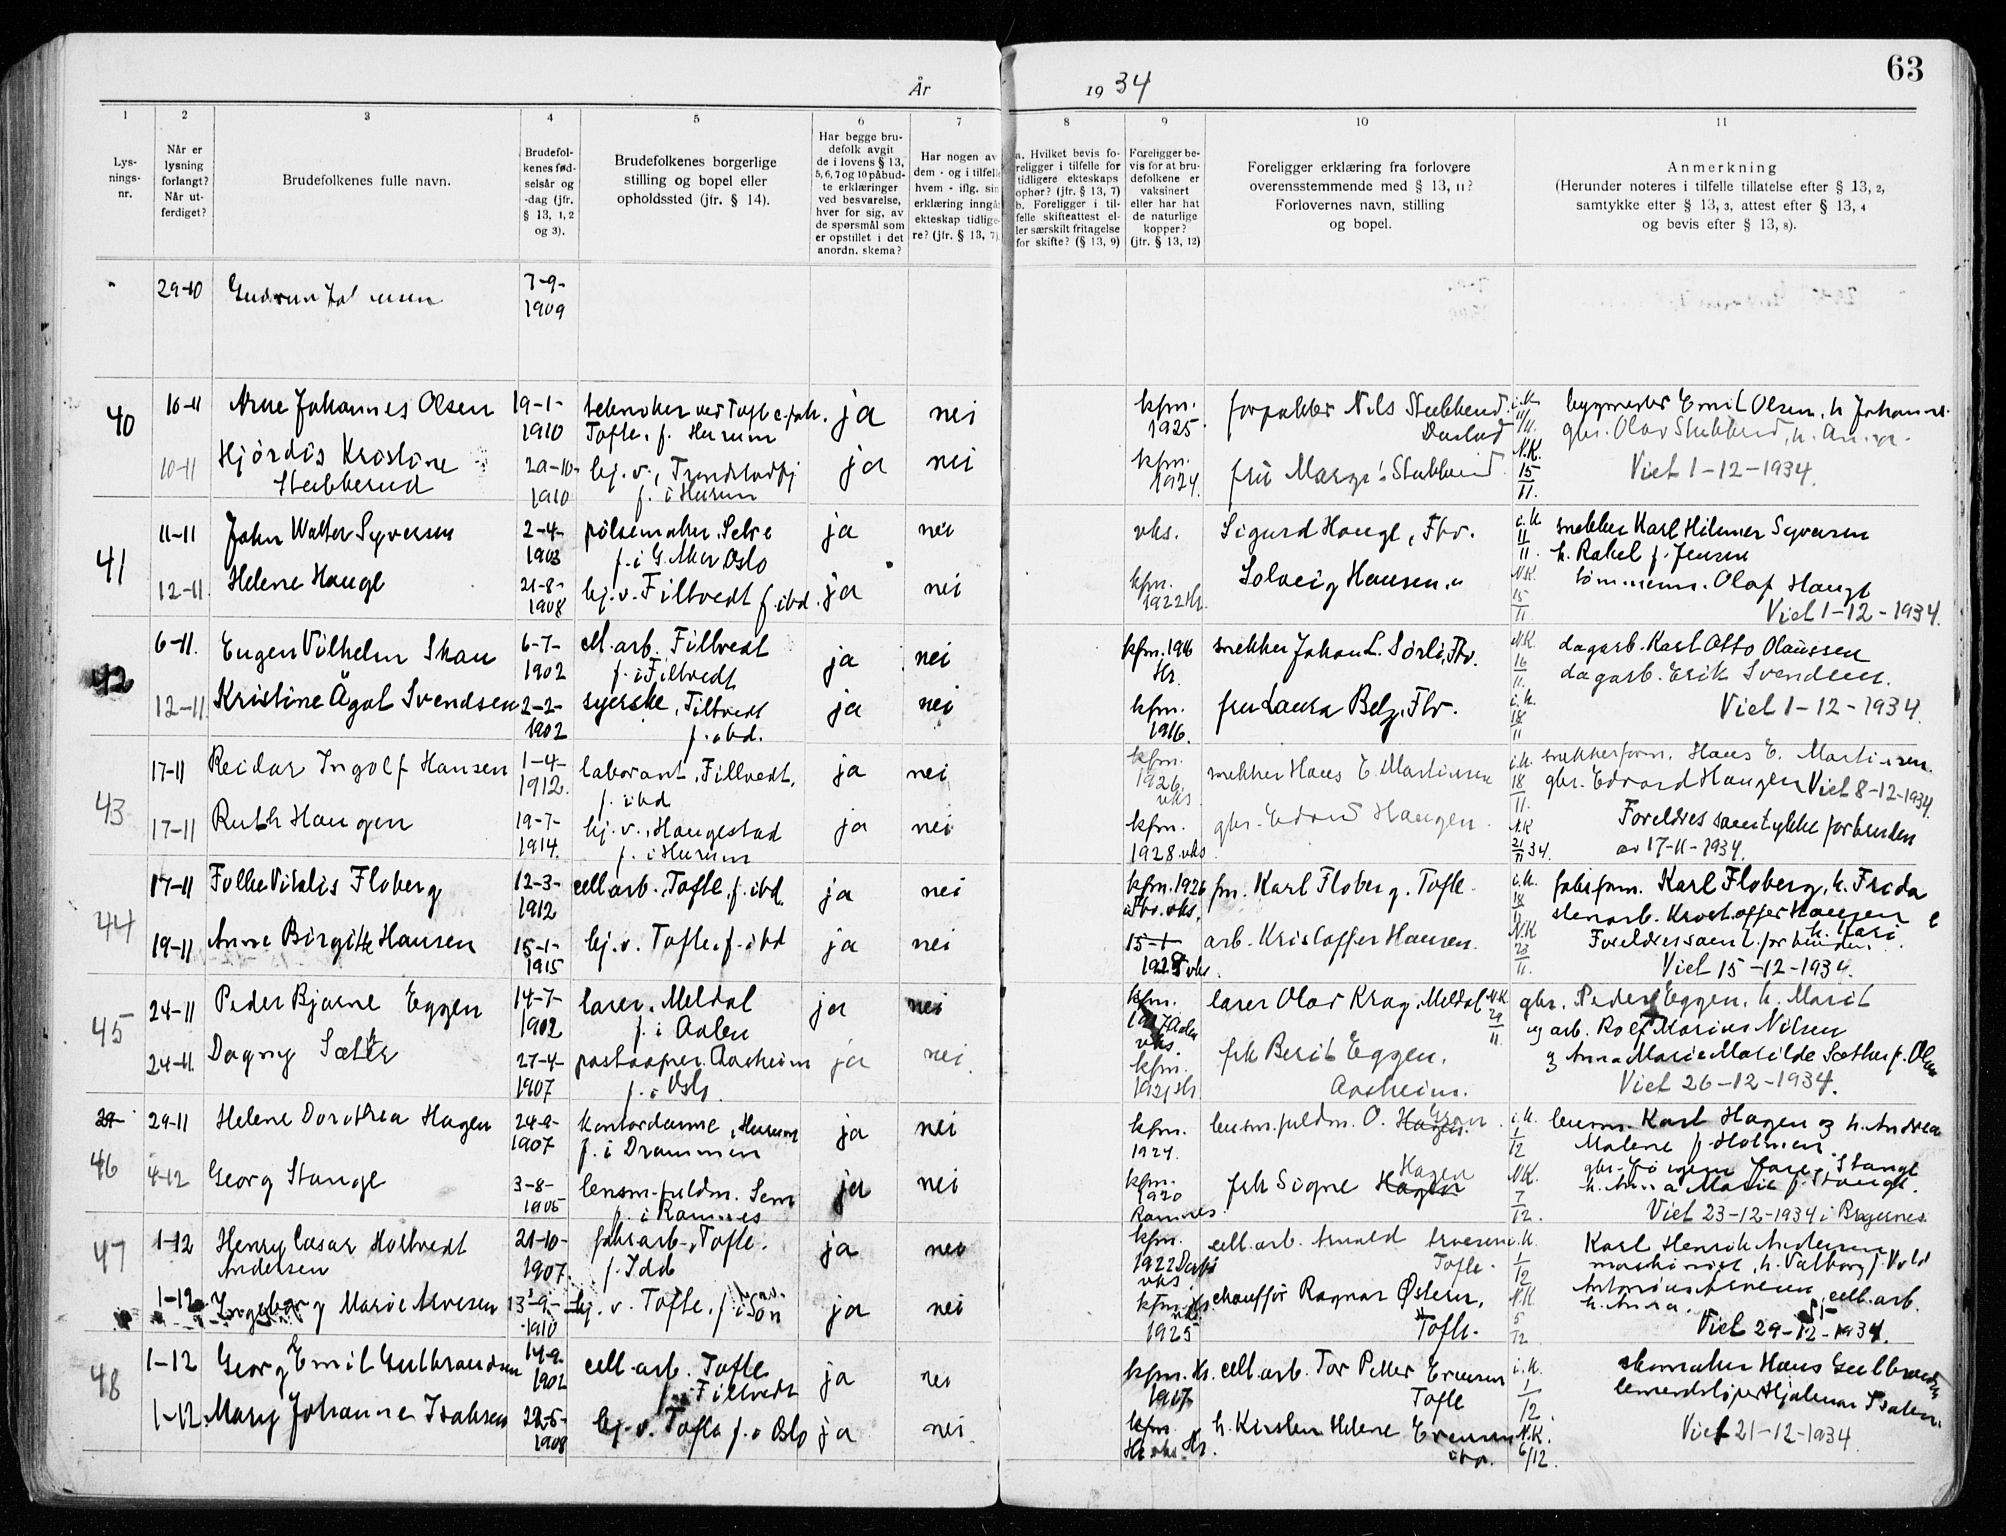 63
År 1934
1 2 3 4 5 6 7 8 9 10 11
Lysnings-nr.
Når er lysning forlangt? Når utferdiget?
Brudefolkenes fulle navn.
Brudefolkenes fødselsår og -dag (jfr. § 13, 1, 2 og 3).
Brudefolkenes borgerlige stilling og bopel eller opholdssted (jfr. § 14).
Har begge brudefolk avgit de i lovens § 13, 5, 6, 7 og 10 påbudte erklæringer ved besvarelse, hver for sig, av de spørsmål som er opstillet i det anordn. skema?
Har nogen av dem - og i tilfelle hvem - iflg. sin erklæring inngått ekteskap tidligere? (jfr. § 13, 7).
a. Hvilket bevis foreligger i tilfelle for tidligere ekteskaps ophør? (jfr. § 13, 7) b. Foreligger i tilfelle skifteattest eller særskilt fritagelse for skifte? (§ 13, 9)
Foreligger bevis for at brudefolkene er vaksinert eller har hat de naturlige kopper? (jfr. § 13, 12)
Foreligger erklæring fra forlovere overensstemmende med § 13, 11? Forlovernes navn, stilling og bopel.
Anmerkning (Herunder noteres i tilfelle tillatelse efter § 13, 2, samtykke efter § 13, 3, attest efter § 13, 4 og bevis efter § 13, 8).
29-10 Gudrun 7-9-1909
40 10-11 Arne Johannes Olsen 19-1-1910 Tofte, f. Hurum ja nei kfm. 1925. Nils Stubberud i.K. Emil Olsen, h. Johanne
10-11 Hjørdis Kristine Stubberud 20-10-1910 hj. v., f. i Hurum ja nei kfm. 1924. Stubberud N.K. 15/11. gbr. Olav Stubberud, h.
Viet 1-12-1934.
41 11-11 John Walter Syversen 2-4-1903 pølsemaker, Selve f. i G. Aker Oslo ja nei vks. Sigurd Haugl, Ftv. i.K. 11/11. snekker Karl Hilmer Syversen h. Rakel f. Jensen
12-11 Helene Haugl 21-8-1908 hj. v. Filtvedt f. ibd. ja nei kfm. 1922 Hr. Solveig Hansen " N.K. 15/11 tømmerm. Olaf Haugl
Viet 1-12-1934.
42 6-11. Eugen Vilhelm Skau 6-7-1902 cell. arb. Filtvedt f. i Filtvedt ja nei kfm. 1916 Hr. snekker Johan L. Sørli, Ftv. N.K. 16/11. dagarb. Karl Otto Olaussen
12-11. Kristine Ågot Svendsen 2-2-1902 syerske, Filtvedt f. ibd. ja nei kfm. 1916. fru Laura Belz, Ftv. i.K. 18/11 dagarb. Erik Svendsen.
Viet 1-12-1934.
43 17-11 Reidar Ingolf Hansen 1-4-1912. laborant, Filtvedt, f. ibd ja nei kfm. 1926. vks snekker Hans E. Martinsen i.K. 18/11. snekkerform. Hans E. Martinsen.
gbr. Edvard Haugen Viet 8-12-1934.
17-11 Ruth Haugen 19-7-1914. hj. v., Haugestad f. i Hurum ja nei kfm. 1928. vks. gbr. Edvard Haugen. N.K. 21/11 34. Foreldres samtykke for bruden av 17-11-1934.
44 17-11 Folke Vitalis Floberg 12-3-1912 cell arb., Tofte, f. ibd. ja nei kfm. 1926 vks. fm. Karl Floberg, Tofte. i.K. 18/11 Karl Floberg, h. Frida
19-11 Anne Birgitte Hansen 15-1-1915 hj. v. Tofte, f. ibd ja nei 15-1- vks. arb. Kristoffer Hansen. N.K. 23/11. stenarb. Kristoffer Hansen
Foreldres samt. for bruden.
Viet 15-12-1934.
45 24-11 Peder Bjarne Eggen 14-7-1902 lærer, Meldal f. i Aalen ja nei kfm. vks. lærer Olav Krag, Meldal N.K. 29/11 gbr. Peder Eggen, h. Marit
24-11. Dagny Sæther 27-4-1907 Aasheim f. i Oslo ja nei kfm. 1921 Hr frk Berit Eggen, Aasheim. og arb. Rolf Marius Nilsen og Anna Marie Matilde Sæther f. Olsen
Viet 26-12-1934.
46 29-11 Helene Dorothea Hagen 24-9-1907 kontordame, Hurum f. i Drammen ja nei kfm. 1924. lensm.fuldm. O. i.K. 1/12 lensm. Karl Hagen og h. Andrea Malene f. Holmen.
4-12 Georg Stangl 3-8-1905 lensm.fuldm. Sem f. i Ramnes ja nei kfm. 1920 Ramnes. frk Signe Hagen N.K. 7/12. h. Anna Marie f. Stangl.
Viet 23-12-1934 i Bragernes
47 1-12 Henry Cæsar Holtvedt Andersen 21-10-1907. fabr arb., Tofte. f. Idd ja nei kfm. 1922 vks cell. arb. Arnold Arvesen Tofte. i.K. 1/12 Karl Henrik Andersen maskinist, h. Valborg f. Vold
1-12 Ingeborg Marie Arvesen 13-9-1910 hj. v. Tofte, f. i Son ja nei kfm. 1925 chauffør Ragnar Østern, Tofte. N.K. 5/12 Antonius Arvesen, cell. arb. h. Anna.
Viet 29-12-1934.
48 1-12 Georg Emil Gulbrandsen 14-9-1902 cell. arb. Tofte f. i Filtvedt ja nei kfm. Hr. 1917 cell. arb. Tor Petter Evensen Tofte i.K. 1/12. skomaker Hans Gulbrandsen
1-12. Mary Johanne Isaksen 22-5-1908 hj. v. Tofte f. i Oslo ja nei kfm Hr. h. Kirsten Helene Evensen N.K. 6/12. Hjalmar Isaksen.
Viet 21-12-1934.